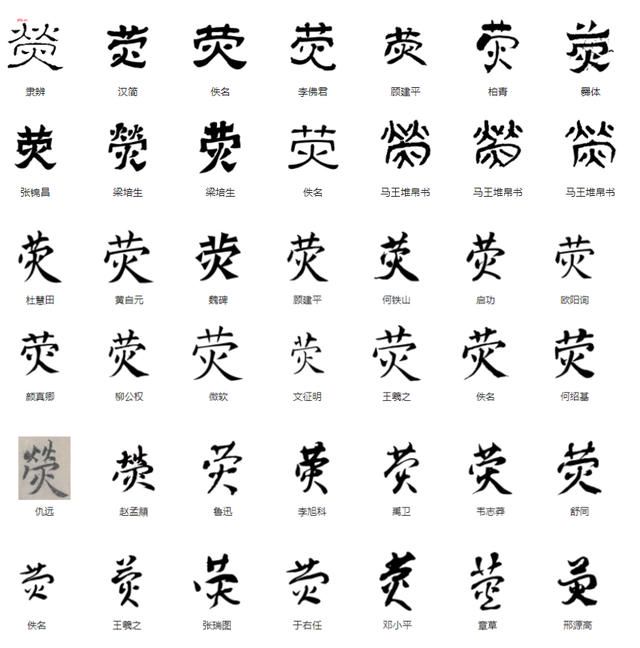 熒 荧 荧 荧 荧 荧 荧
隶辨 汉简 佚名 李佛君 顾建平 柏青 爨体
荧 熒 荧 荧 熒 熒 熒
梁培生 梁培生 佚名 马王堆帛书 马王堆帛书 马王堆帛书
荧 荧 荧 荧 荧 荧 荧
杜慧田 黄自元 魏碑 顾建平 何铁山 启功 欧阳询
荧 荧 荧 荧 荧 荧 荧
颜真卿 柳公权 微软 文征明 王羲之 佚名 何绍基
熒 熒 荧 荧 荧 荧 荧
仇远 赵孟頫 鲁迅 李旭科 禹卫 韦志莽 舒同
荧 荧 荧 荧 荧 荧 荧
佚名 王羲之 张瑞图 于右任 邓小平 章草